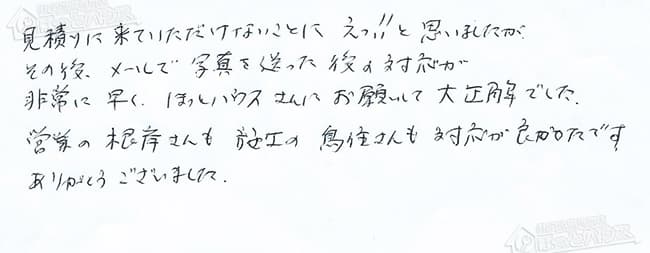 見積りに来ていただけないことに えっ!!と 思いましたが
その後、メールで 写真を送った 後の 対応が
非常に 早く、ほっとハウス さんに お願いして 大正解でした。
営業の 根岸さんも 施工の 鳥住さんも 対応が 良かったです
ありがとう ございました。
ほっとハウス